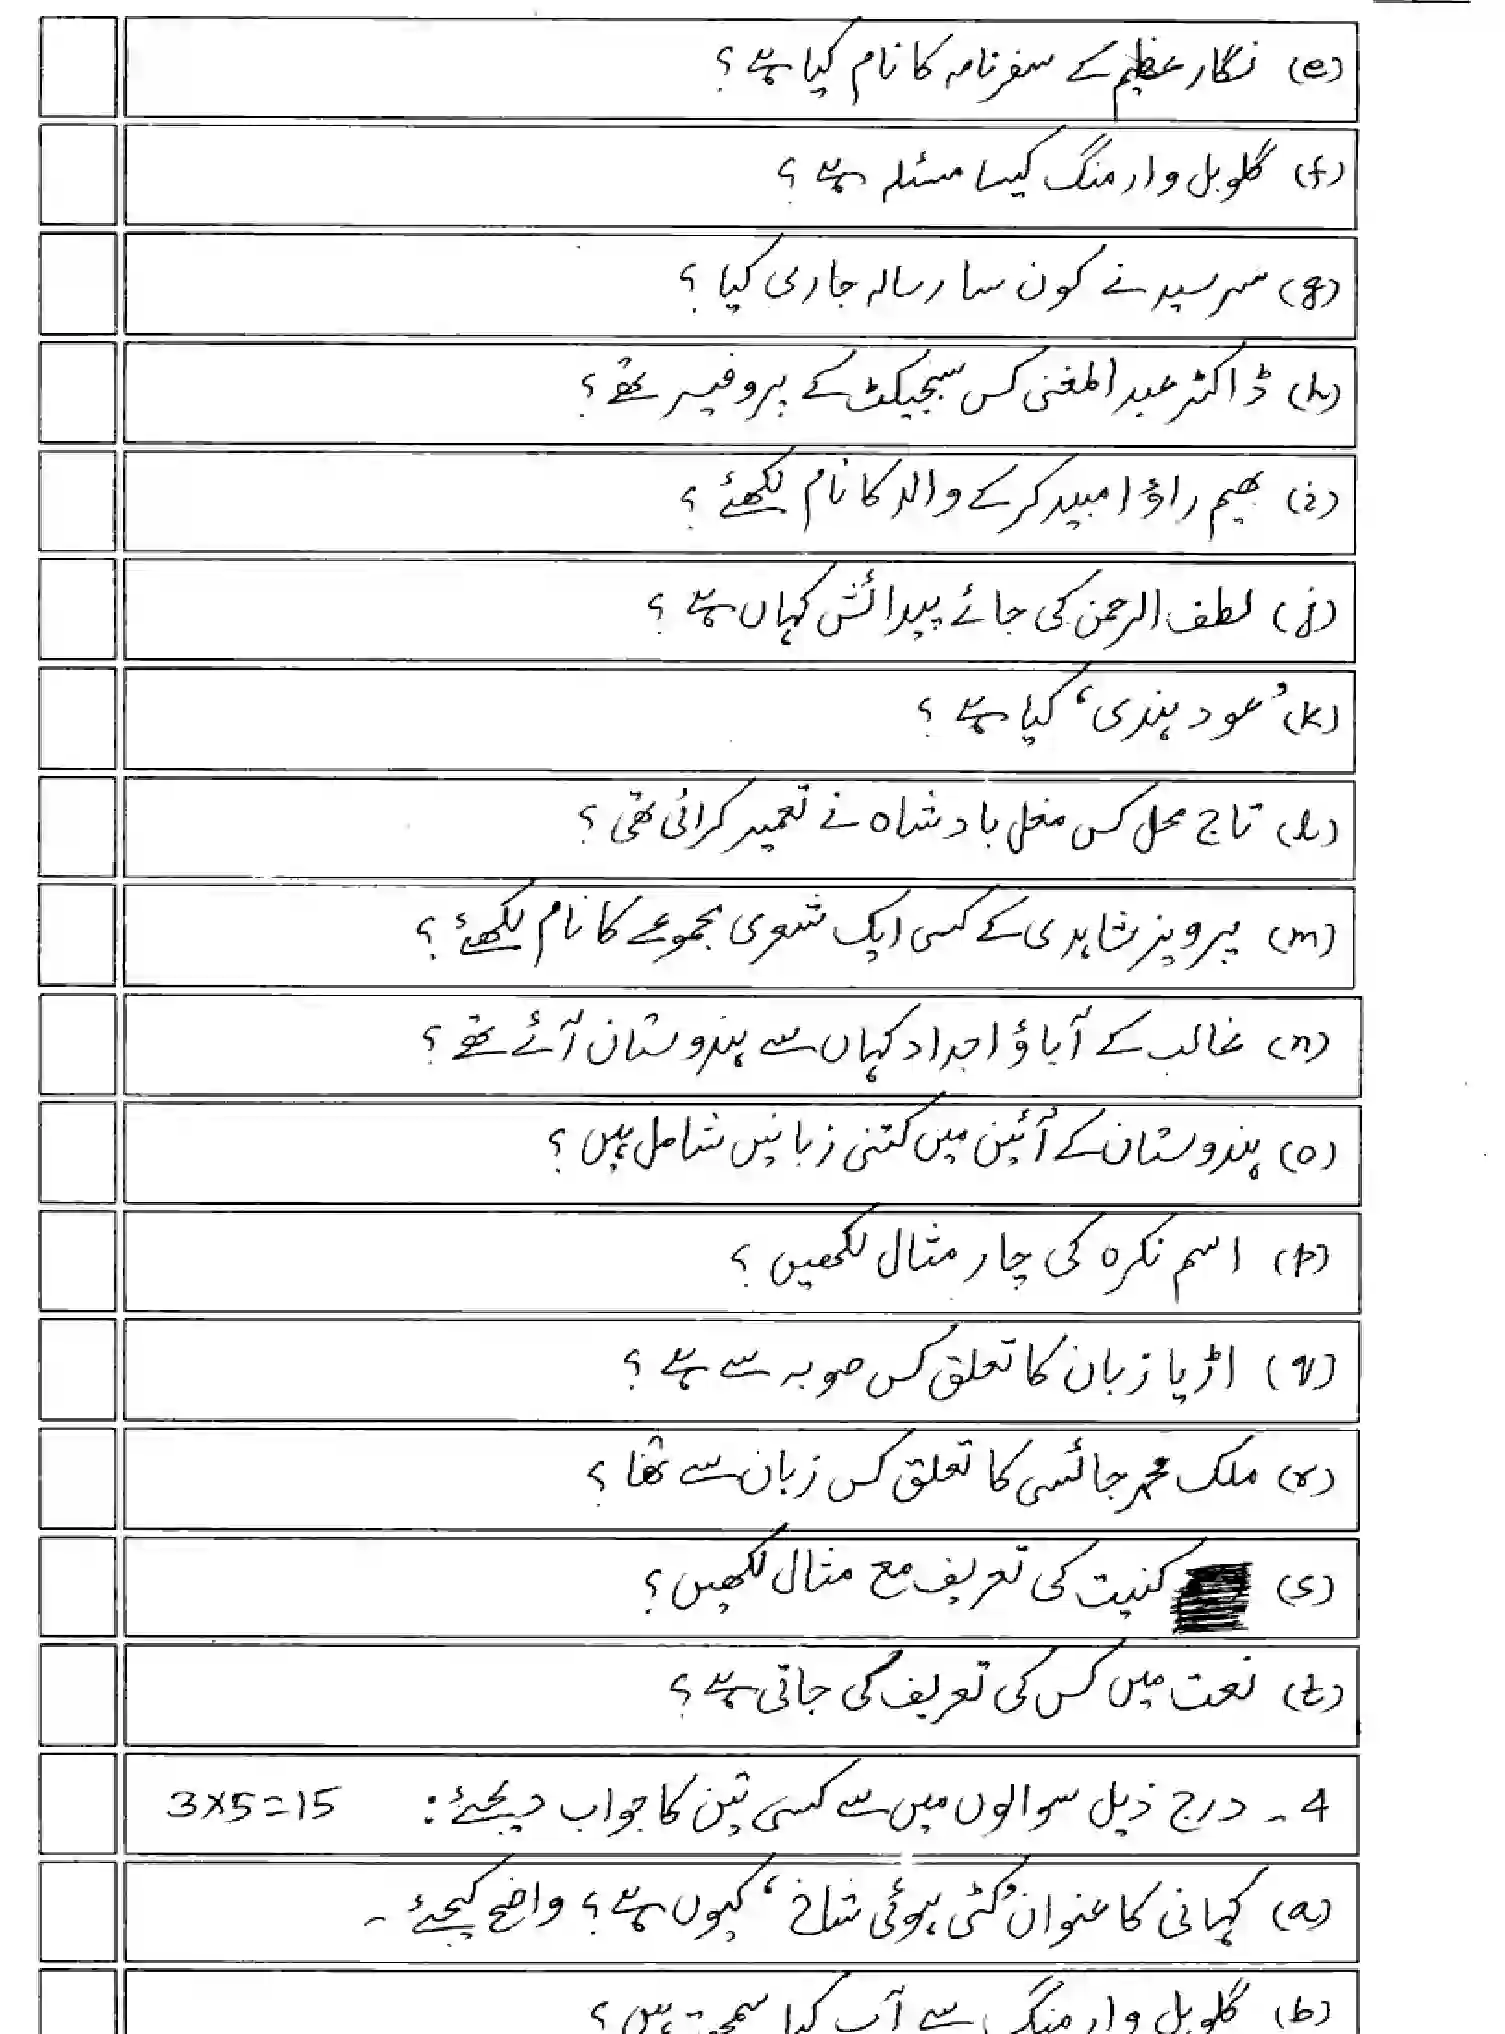 (e) نگار عظیم کے سفرنامہ کا نام کیا ہے ؟
(f) گلوبل وارمنگ کیسا مسئلہ ہے ؟
(g) سرسید نے کون سا رسالہ جاری کیا ؟
(h) ڈاکٹر عبدالمغنی کس سبجیکٹ کے پروفیسر تھے ؟
(i) بھیم راؤ امبیدکر کے والد کا نام لکھئے ؟
(j) لطف الرحمن کی جائے پیدائش کہاں ہے ؟
(k) ’عود ہندی‘ کیا ہے ؟
(l) تاج محل کس مغل بادشاہ نے تعمیر کرائی تھی ؟
(m) پرویز شاہدی کے کسی ایک شعری مجموعے کا نام لکھئے ؟
(n) غالب کے آباؤ اجداد کہاں سے ہندوستان آئے تھے ؟
(o) ہندوستان کے آئین میں کتنی زبانیں شامل ہیں ؟
(p) اسم نکرہ کی چار مثال لکھیں ؟
(q) اڑیا زبان کا تعلق کس صوبہ سے ہے ؟
(r) ملک محمد جائسی کا تعلق کس زبان سے تھا ؟
(s) کنیت کی تعریف مع مثال لکھیں ؟
(t) نعت میں کس کی تعریف کی جاتی ہے ؟
4۔ درج ذیل سوالوں میں سے کسی تین کا جواب دیجئے : 3×5=15
(a) کہانی کا عنوان ’کٹی ہوئی شاخ‘ کیوں ہے ؟ واضح کیجئے ۔
(b) گلوبل وارمنگ سے آپ کیا سمجھتے ہیں ؟